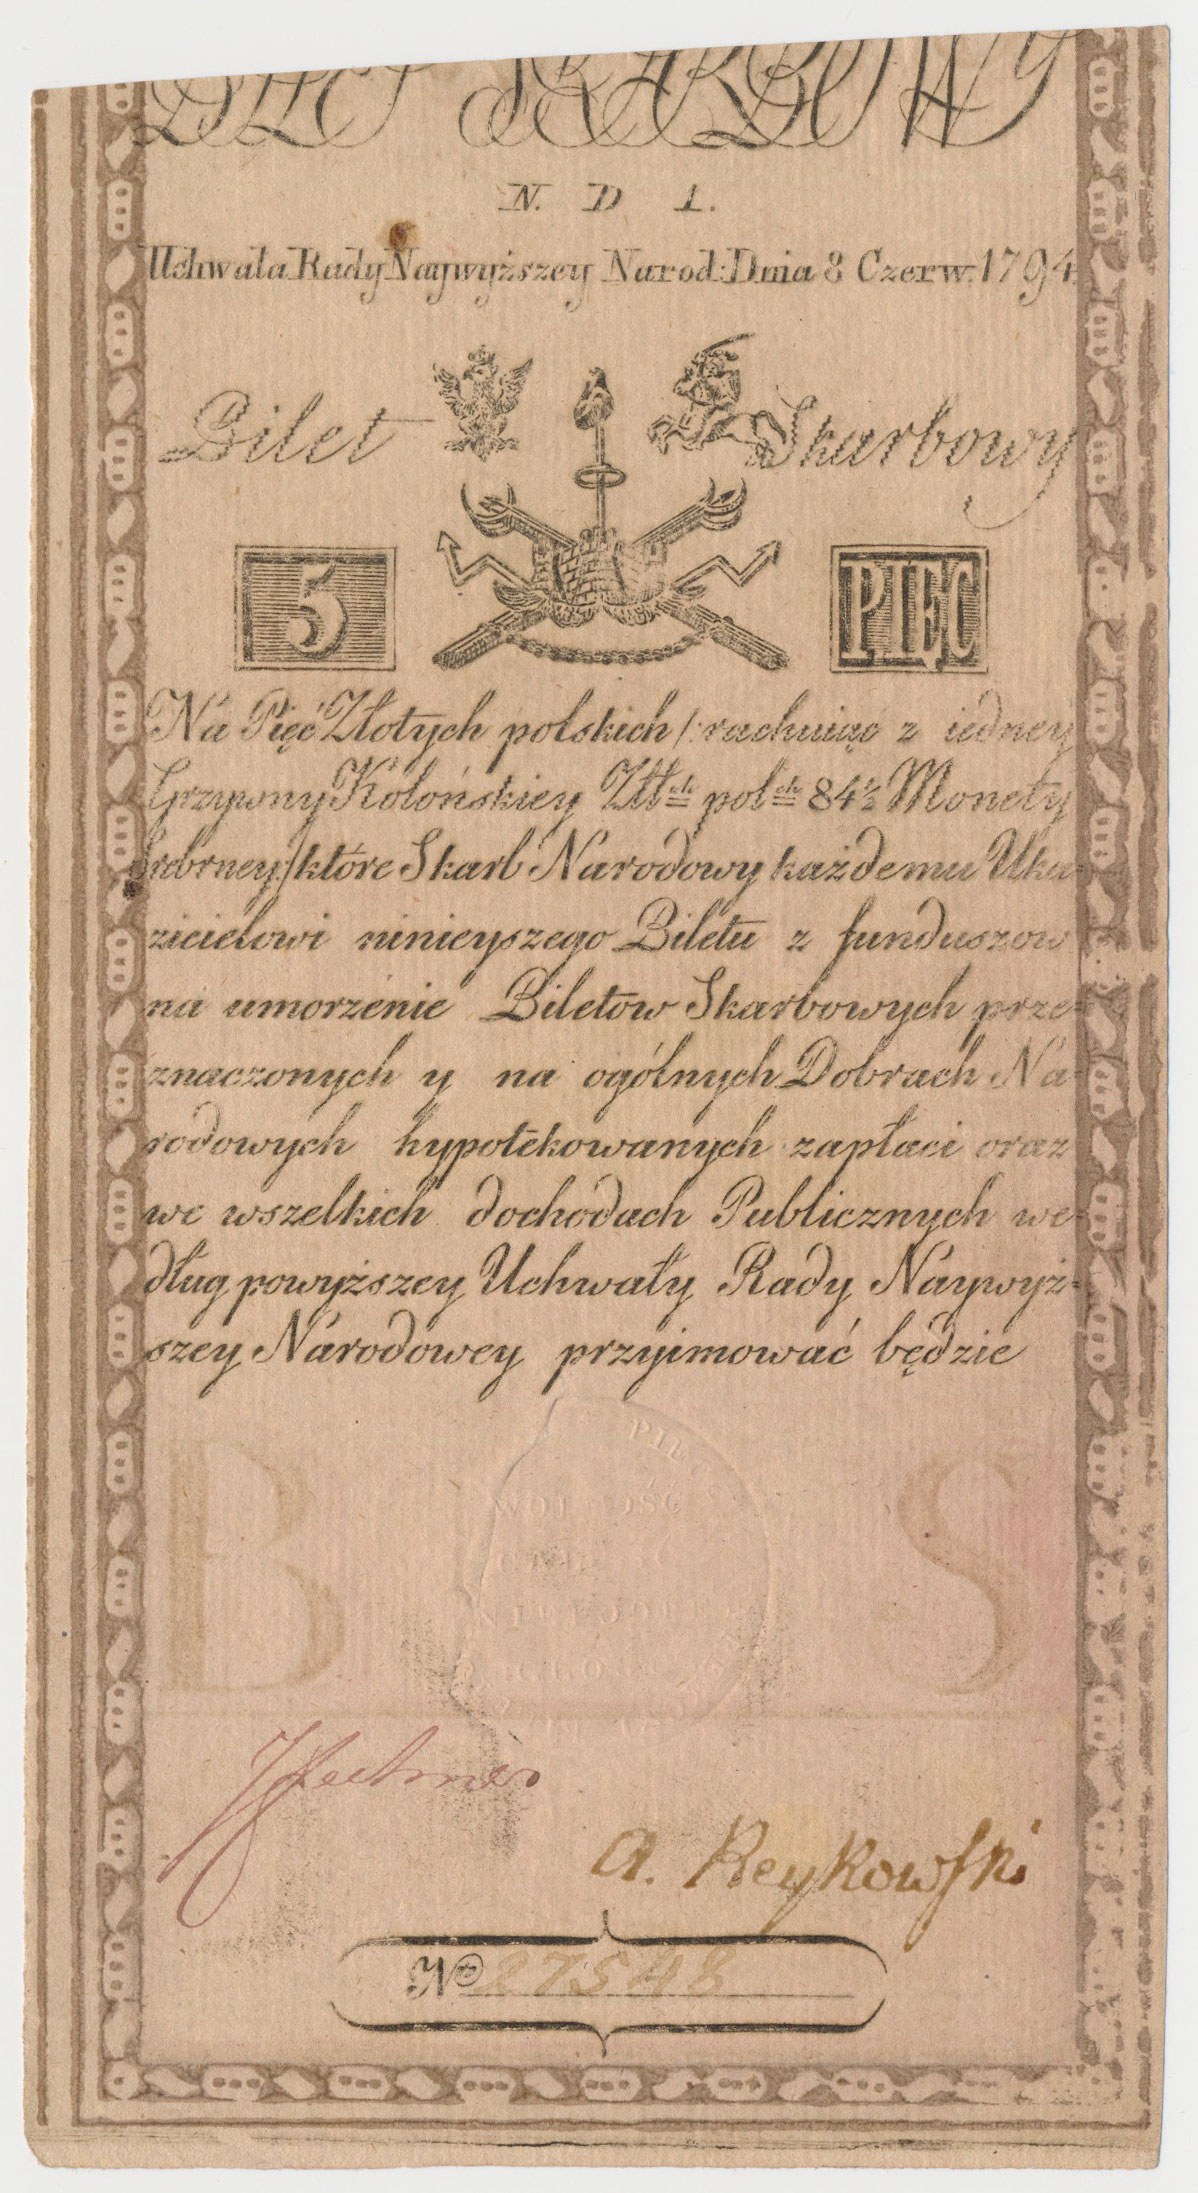 BILET SKARBOWY
N. D 1.
Uchwala Rady Naywyższey Narod: Dnia 8 Czerw. 1794.
Bilet Skarbowy
5 PIĘC
Na Pięć Złotych polskich /: rachuiąc z iedney
Grzywny Kolońskiey Złł.ch pol.ch 84½ Monety
Srebrney:/ które Skarb Narodowy każdemu Uka-
zicielowi ninieyszego Biletu z funduszow
na umorzenie Biletow Skarbowych prze-
znaczonych y na ogólnych Dobrach Na-
rodowych hypotekowanych zapłaci oraz
we wszelkich dochodach Publicznych we-
dług powyższey Uchwały Rady Naywyż-
szey Narodowey przyimować będzie
PIĘC
WOLNOŚĆ
B S
A. Reykowski
No 27548